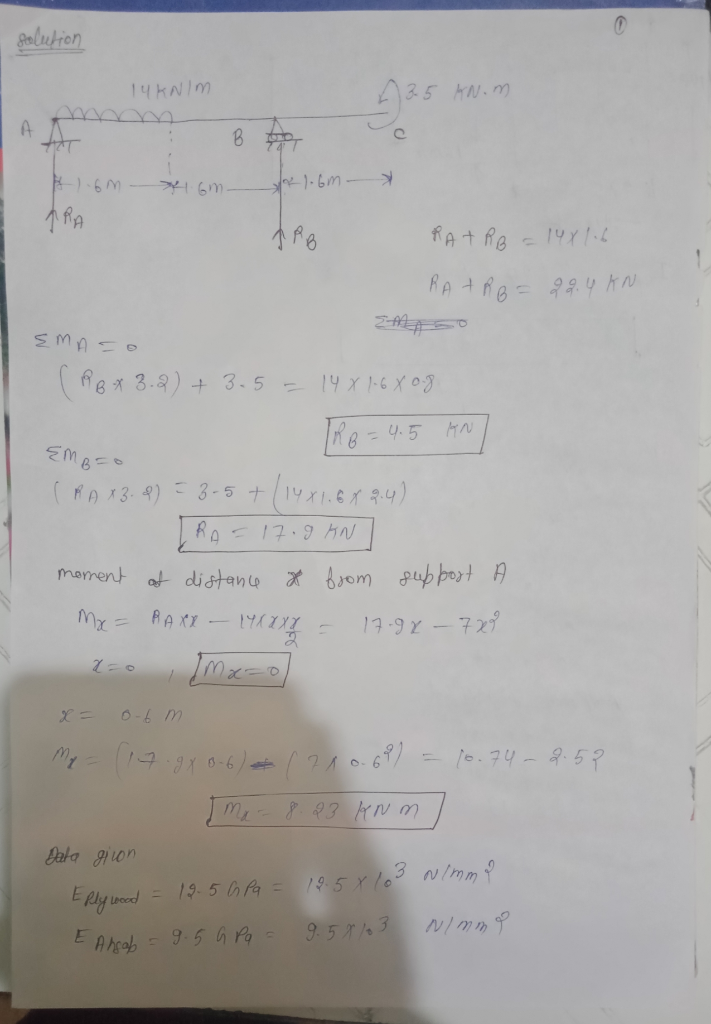 ①
Solution
14 KN/m
3.5 KN.m
A
B
C
1.6m
1.6m
1.6m
RA
RB
RA + RB = 14 x 1.6
RA + RB = 22.4 KN
ΣMA = 0
ΣMA = 0
(RB x 3.2) + 3.5 = 14 x 1.6 x 0.8
RB = 4.5 KN
ΣMB = 0
(RA x 3.2) = 3.5 + (14 x 1.6 x 2.4)
RA = 17.9 KN
moment at distance x from support A
Mx = RA x x - 14 x x x x/2 = 17.9x - 7x²
x = 0, Mx = 0
x = 0.6 m
Mx = (17.9 x 0.6) - (7 x 0.6²) = 10.74 - 2.52
Mx = 8.23 KN m
Data given
E Plywood = 12.5 GPa = 12.5 x 10³ N/mm²
E = 9.5 GPa = 9.5 x 10³ N/mm²